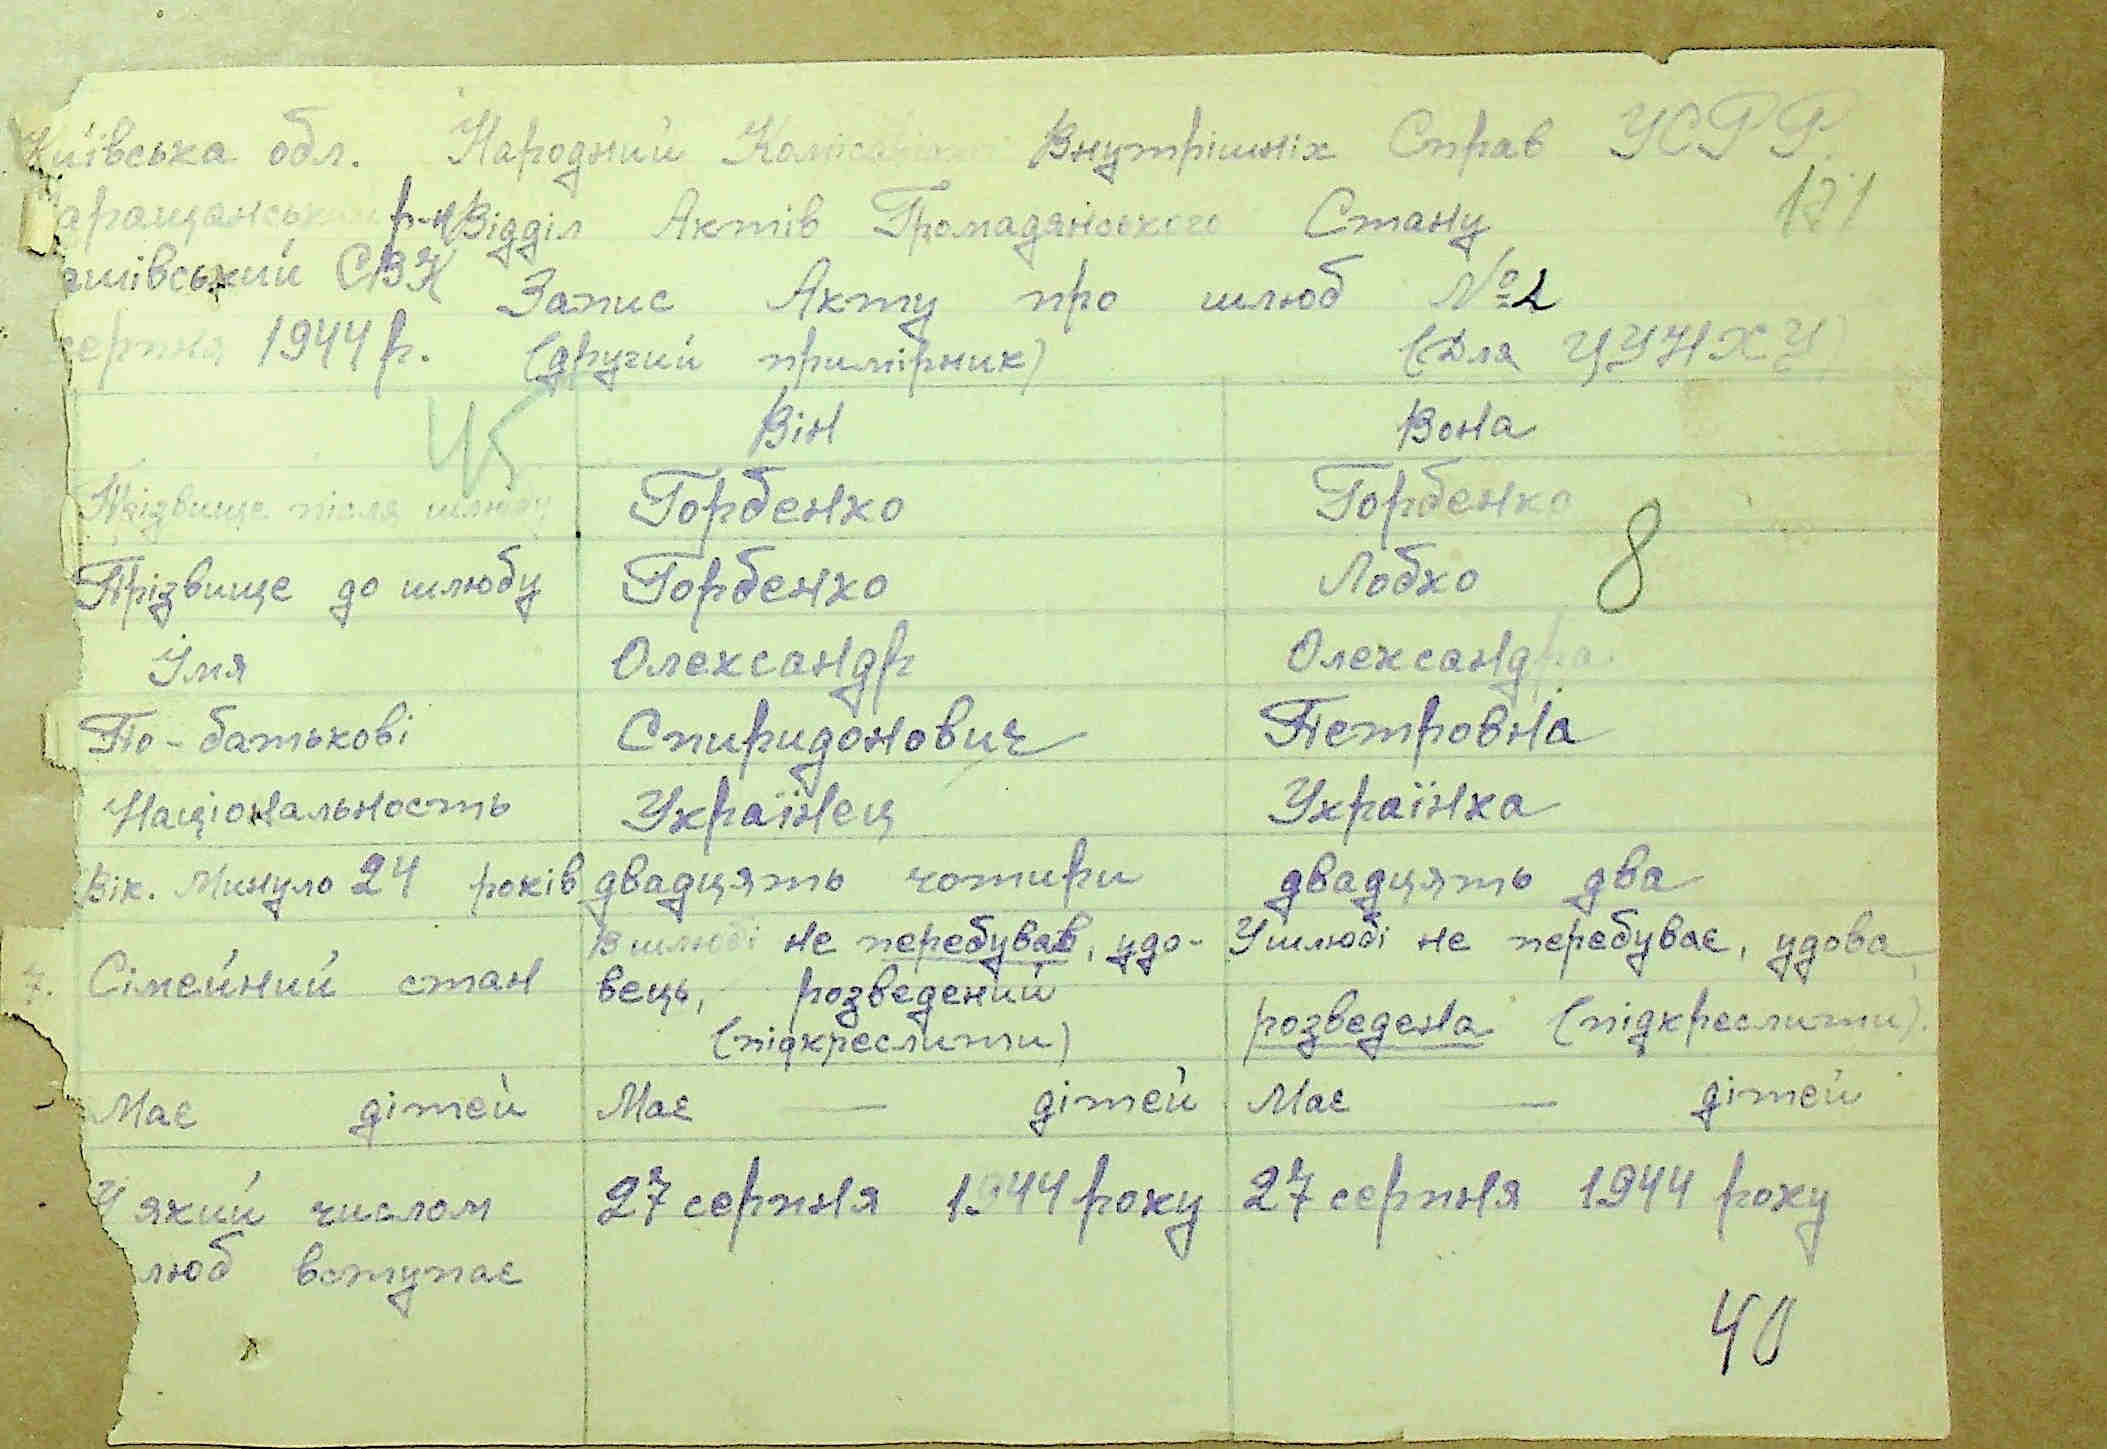 Київська обл. Народний Комісаріат Внутрішніх Справ УСРР.
аращанський р-н Відділ Актів Громадянського Стану 121
ашівський СВК Запис Акту про шлюб № 2
серпня 1944 р. (другий примірник) (Для ЦУНХУ)
45 Він Вона
Прізвище після шлюбу Горбенко Горбенко
8
Прізвище до шлюбу Горбенко Лобко
Імя Олександр Олександра
По-батькові Спиридонович Петровна
Національность Українец Українка
Вік. Минуло 24 років двадцять чотири двадцять два
В шлюбі не перебував, удо- У шлюбі не перебуває, удова,
7. Сімейний стан вець, розведений
(підкреслити) розведена (підкреслити).
Має дітей Має — дітей Має — дітей
У який числом 27 серпня 1944 року 27 серпня 1944 року
люб вступає
40